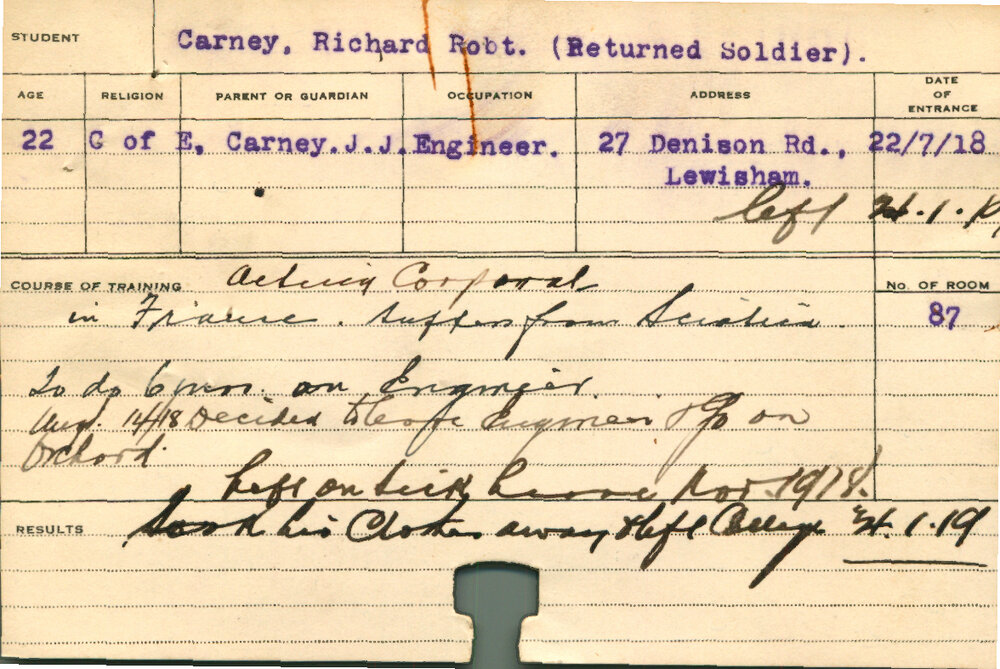 STUDENT Carney, Richard Robt. (Returned Soldier).
AGE RELIGION PARENT OR GUARDIAN OCCUPATION ADDRESS DATE OF ENTRANCE
22 C of E, Carney.J.J. Engineer. 27 Denison Rd., 22/7/18
Lewisham.
left 21.1.19
COURSE OF TRAINING Acting Corporal No. OF ROOM
in France. Suffers from Sciatica. 87
To do 6 mos. on Engineer
Aug. 14/18 Decided to leave Engineer & go on
Orchard.
Left on Sick Leave Nov. 1918.
RESULTS Took his Clothes away & left College 21.1.19